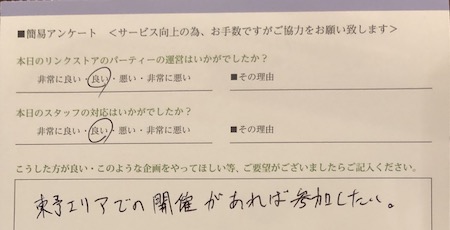 ■簡易アンケート ＜サービス向上の為、お手数ですがご協力をお願い致します＞
本日のリンクストアのパーティーの運営はいかがでしたか？
非常に良い・良い・悪い・非常に悪い ■その理由
本日のスタッフの対応はいかがでしたか？
非常に良い・良い・悪い・非常に悪い ■その理由
こうした方が良い・このような企画をやってほしい等、ご要望がございましたらご記入ください。
東予エリアでの開催があれば参加したい。